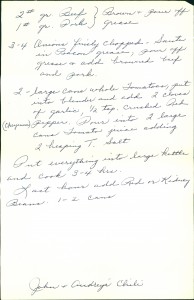 2# gr. Beef } Brown - pour off
1# gr. Pork } grease
3-4 Onions finely chopped - Saute
in Bacon grease, pour off
grease & add browned beef
and pork
2 - large cans whole Tomatoes, put
into blender and add 2 cloves
of garlic, ½ tsp. crushed Red
(Cayenne) Pepper. Pour into 2 large
cans Tomato juice adding
2 heaping T. Salt
Put everything into large Kettle
and cook 3-4 hrs.
Last hour add Red or Kidney
Beans 1-2 cans
John & Audrey's Chili